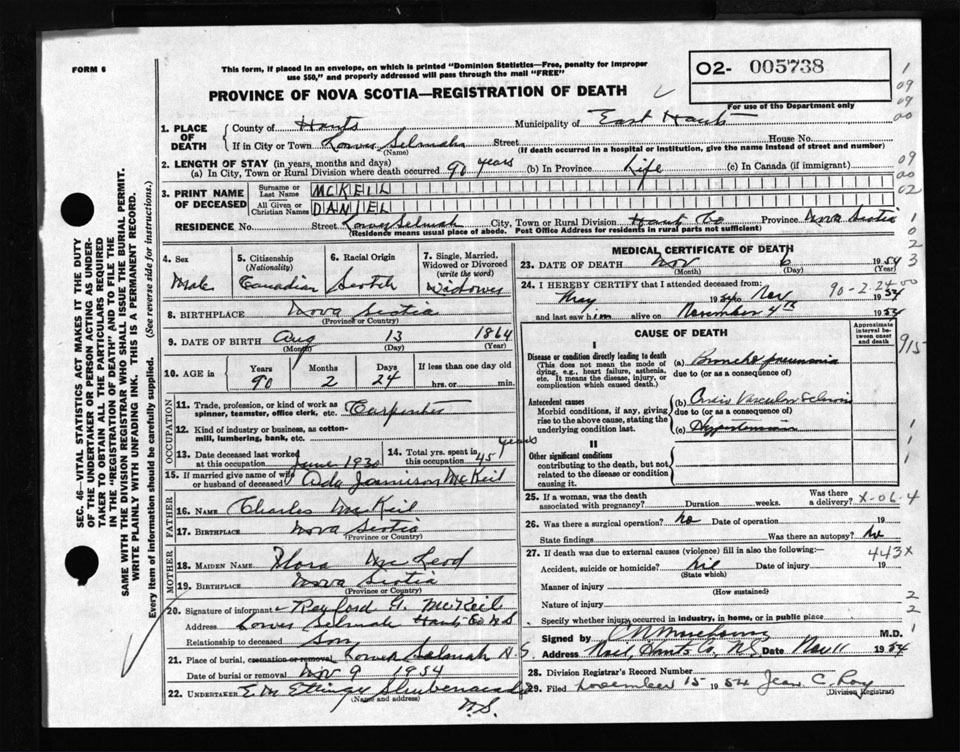 FORM 6
This form, if placed in an envelope, on which is printed "Dominion Statistics—Free, penalty for improper
use $50," and properly addressed will pass through the mail "FREE"
02- 005738
For use of the Department only
PROVINCE OF NOVA SCOTIA—REGISTRATION OF DEATH
SEC. 46—VITAL STATISTICS ACT MAKES IT THE DUTY
OF THE UNDERTAKER OR PERSON ACTING AS UNDER-
TAKER TO OBTAIN ALL THE PARTICULARS REQUIRED
IN THE "REGISTRATION OF DEATH" AND TO FILE THE
SAME WITH THE DIVISION REGISTRAR WHO SHALL ISSUE THE BURIAL PERMIT.
WRITE PLAINLY WITH UNFADING INK. THIS IS A PERMANENT RECORD.
Every item of information should be carefully supplied. (See reverse side for instructions.)
1. PLACE OF DEATH County of Hants Municipality of East Hants
If in City or Town Lower Selmah Street House No.
(Name) (If death occurred in a hospital or institution, give the name instead of street and number)
2. LENGTH OF STAY (in years, months and days)
(a) In City, Town or Rural Division where death occurred 90 years (b) In Province Life (c) In Canada (if immigrant)
3. PRINT NAME OF DECEASED Surname or Last Name MCKEIL
All Given or Christian Names DANIEL
RESIDENCE No. Street Lower Selmah City, Town or Rural Division Hants Co Province Nova Scotia
(Residence means usual place of abode. Post Office Address for residents in rural parts not sufficient)
4. Sex Male
5. Citizenship (Nationality) Canadian
6. Racial Origin Scotch
7. Single, Married, Widowed or Divorced (write the word) Widower
8. BIRTHPLACE Nova Scotia
(Province or Country)
9. DATE OF BIRTH Aug 13 1864
(Month) (Day) (Year)
10. AGE in Years 90 Months 2 Days 24 If less than one day old hrs. or min.
OCCUPATION
11. Trade, profession, or kind of work as spinner, teamster, office clerk, etc. Carpenter
12. Kind of industry or business, as cotton-mill, lumbering, bank, etc.
13. Date deceased last worked at this occupation June 1930
14. Total yrs. spent in this occupation 45 years
15. If married give name of wife or husband of deceased Ada Jamison McKeil
FATHER
16. NAME Charles McKeil
17. BIRTHPLACE Nova Scotia
(Province or Country)
MOTHER
18. MAIDEN NAME Flora McLeod
19. BIRTHPLACE Nova Scotia
(Province or Country)
20. Signature of informant Rayford G. McKeil
Address Lower Selmah Hants Co N.S
Relationship to deceased Son
21. Place of burial, cremation or removal Lower Selmah N.S.
Date of burial or removal Nov 9 1954
22. UNDERTAKER E. M. Ettinger Shubenacadie
(Name and address) N.S.
MEDICAL CERTIFICATE OF DEATH
23. DATE OF DEATH Nov 6 1954
(Month) (Day) (Year)
24. I HEREBY CERTIFY that I attended deceased from: 90-2-24
May 1954 to Nov 1954
and last saw him alive on November 4th 1954
CAUSE OF DEATH
Approximate interval between onset and death
I
Disease or condition directly leading to death
(This does not mean the mode of dying, e.g., heart failure, asthenia, etc. It means the disease, injury, or complication which caused death.)
(a) Broncho pneumonia
due to (or as a consequence of)
Antecedent causes
Morbid conditions, if any, giving rise to the above cause, stating the underlying condition last.
(b) Vascular
due to (or as a consequence of)
(c) Hypertension
II
Other significant conditions
contributing to the death, but not related to the disease or condition causing it.
25. If a woman, was the death associated with pregnancy? Duration weeks. Was there a delivery? X-06-4
26. Was there a surgical operation? No Date of operation 19
State findings Was there an autopsy? No
27. If death was due to external causes (violence) fill in also the following:— 443X
Accident, suicide or homicide? nil Date of injury 19
(State which)
Manner of injury
(How sustained)
Nature of injury
Specify whether injury occurred in industry, in home, or in public place
Signed by M.D.
Address Noel, Hants Co, N.S. Date Nov 11 1954
28. Division Registrar's Record Number
29. Filed November 15 1954 Jean C. Roy
(Division Registrar)